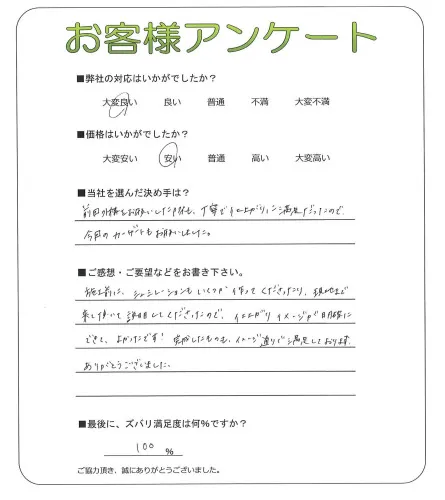 お客様アンケート
■弊社の対応はいかがでしたか？
大変良い 良い 普通 不満 大変不満
■価格はいかがでしたか？
大変安い 安い 普通 高い 大変高い
■当社を選んだ決め手は？
前回外構をお願いした時も、丁寧で仕上がりに満足だったので
今回のカーポートもお願いしました。
■ご感想・ご要望などをお書き下さい。
施工前に、シュミレーションもいくつか作ってくださったり、現地まで
来て頂いて説明してくださったので、仕上がりイメージが明確に
できて、よかったです！完成したものも、イメージ通りで満足しております
ありがとうございました。
■最後に、ズバリ満足度は何％ですか？
100 ％
ご協力頂き、誠にありがとうございました。